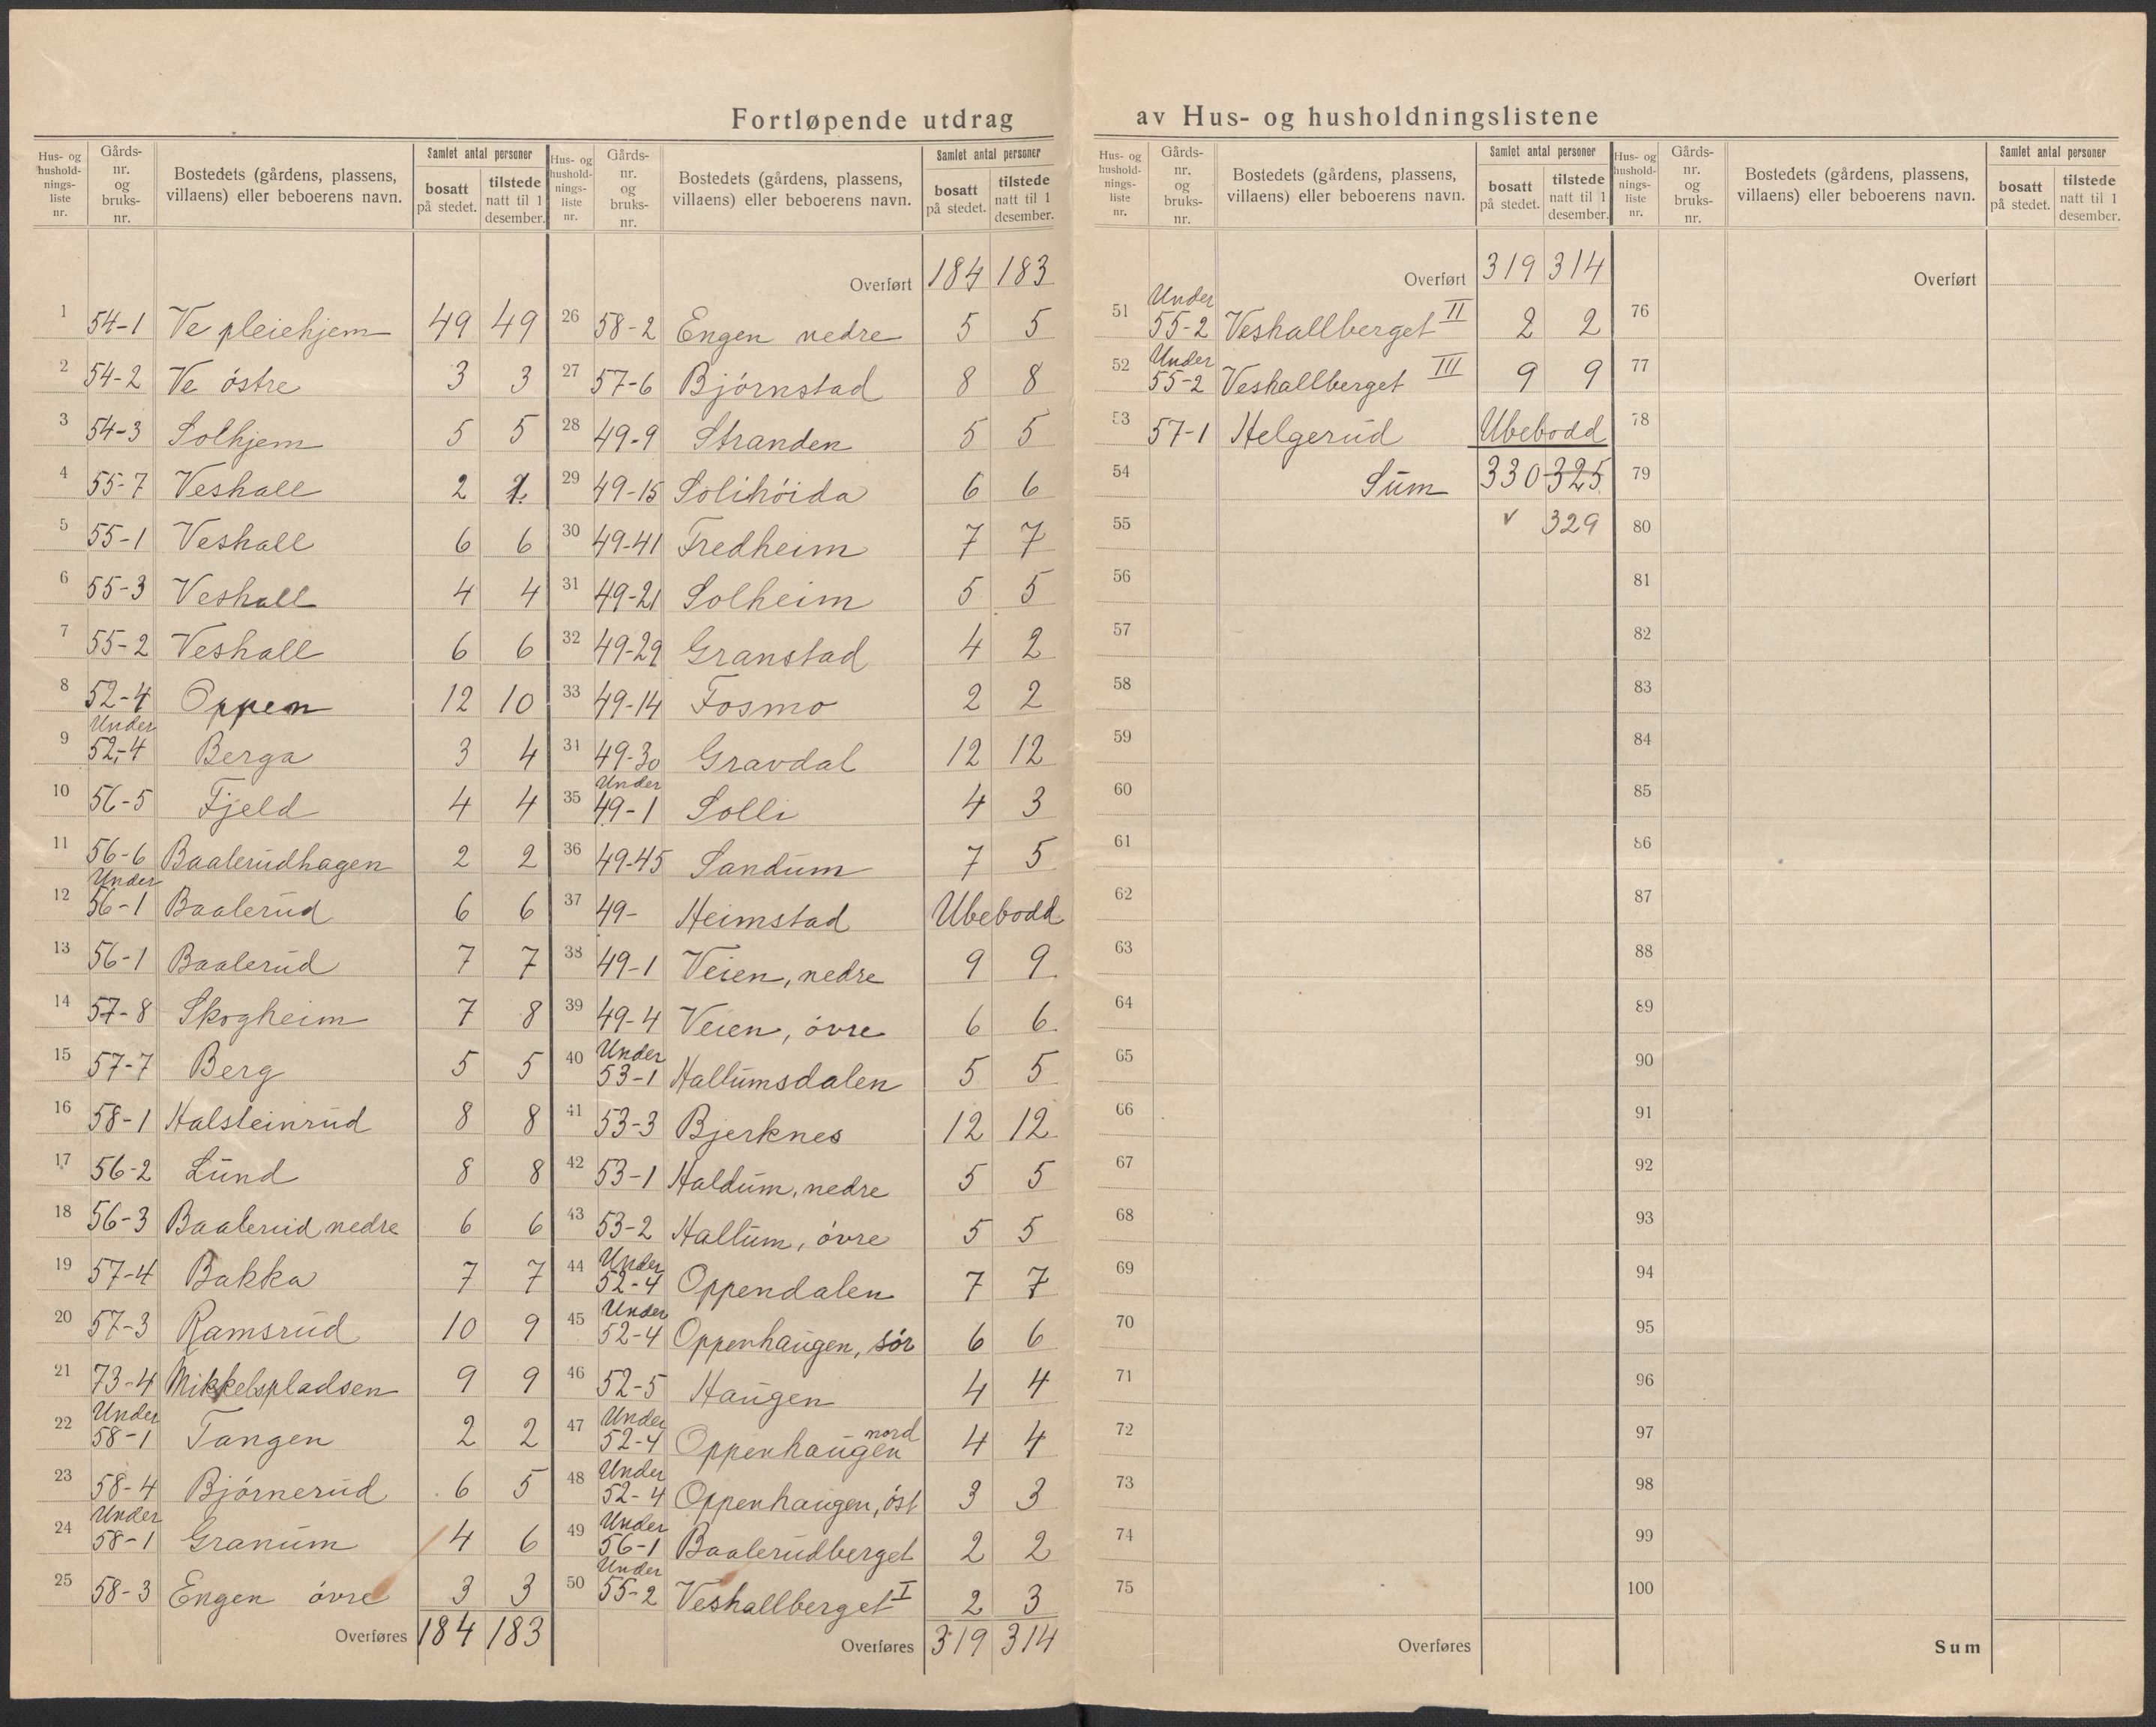 Fortløpende utdrag av Hus- og husholdningslistene
Hus- og hushold-nings-liste nr. | Gårds-nr. og bruks-nr. | Bostedets (gårdens, plassens, villaens) eller beboerens navn. | Samlet antal personer | bosatt på stedet. | tilstede natt til 1 desember.
1 54-1 Ve pleiehjem 49 49
2 54-2 Ve östre 3 3
3 54-3 Solhjem 5 5
4 55-7 Veshall 2
5 55-1 Veshall 6 6
6 55-3 Veshall 4 4
7 55-2 Veshall 6 6
8 52-4 Oppen 12 10
9 Under 52-4 Berga 3 4
10 56-5 Fjeld 4 4
11 56-6 Baalerudhagen 2 2
12 Under 56-1 Baalerud 6 6
13 56-1 Baalerud 7 7
14 57-8 Skogheim 7 8
15 57-7 Berg 5 5
16 58-1 Halsteinrud 8 8
17 56-2 Lund 8 8
18 56-3 Baalerud nedre 6 6
19 57-4 Bakka 7 7
20 57-3 Ramsrud 10 9
21 73-4 Mikkelspladsen 9 9
22 Under 58-1 Tangen 2 2
23 58-4 Björnerud 6 5
24 Under 58-1 Granum 4 6
25 58-3 Engen övre 3 3
Overføres 184 183
Hus- og hushold-nings-liste nr. | Gårds-nr. og bruks-nr. | Bostedets (gårdens, plassens, villaens) eller beboerens navn. | Samlet antal personer | bosatt på stedet. | tilstede natt til 1 desember.
Overført 184 183
26 58-2 Engen nedre 5 5
27 57-6 Björnstad 8 8
28 49-9 Stranden 5 5
29 49-15 Solihöida 6 6
30 49-41 Fredheim 7 7
31 49-21 Solheim 5 5
32 49-29 Granstad 4 2
33 49-14 Fosmo 2 2
34 49-30 Gravdal 12 12
35 Under 49-1 Solli 4 3
36 49-45 Sandum 7 5
37 49- Heimstad Ubebodd
38 49-1 Veien, nedre 9 9
39 49-4 Veien, övre 6 6
40 Under 53-1 Hallumsdalen 5 5
41 53-3 Bjerknes 12 12
42 53-1 Haldum, nedre 5 5
43 53-2 Hallum, övre 5 5
44 Under 52-4 Oppendalen 7 7
45 Under 52-4 Oppenhaugen, sör 6 6
46 52-5 Haugen 4 4
47 Under 52-4 Oppenhaugen nord 4 4
48 Under 52-4 Oppenhaugen, öst 3 3
49 Under 56-1 Baalerudberget 2 2
50 Under 55-2 Veshallberget I 2 3
Overføres 319 314
Hus- og hushold-nings-liste nr. | Gårds-nr. og bruks-nr. | Bostedets (gårdens, plassens, villaens) eller beboerens navn. | Samlet antal personer | bosatt på stedet. | tilstede natt til 1 desember.
Overført 319 314
51 Under 55-2 Veshallberget II 2 2
52 Under 55-2 Veshallberget III 9 9
53 57-1 Helgerud Ubebodd
54 Sum 330 325
55 v 329
56
57
58
59
60
61
62
63
64
65
66
67
68
69
70
71
72
73
74
75
Overføres
Hus- og hushold-nings-liste nr. | Gårds-nr. og bruks-nr. | Bostedets (gårdens, plassens, villaens) eller beboerens navn. | Samlet antal personer | bosatt på stedet. | tilstede natt til 1 desember.
Overført
76
77
78
79
80
81
82
83
84
85
86
87
88
89
90
91
92
93
94
95
96
97
98
99
100
Sum